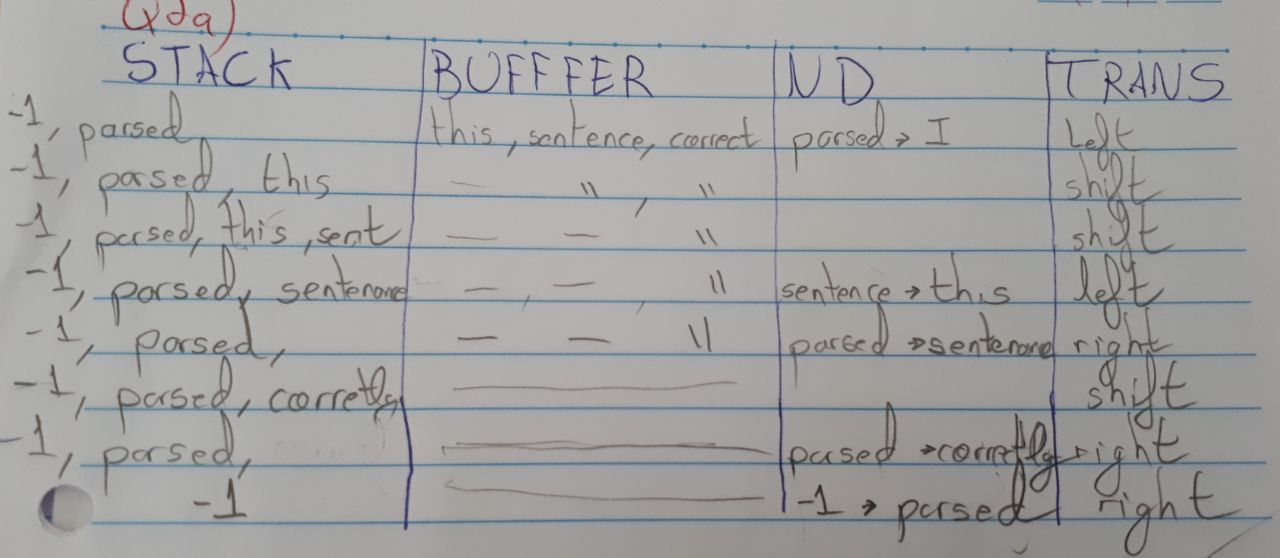 STACK BUFFFER ND TRANS
-1, parsed this, sentence, correct parsed → I Left
-1, parsed, this — " , " shift
-1, parsed, this, sent — — " shift
-1, parsed, sentence — , — , " sentence → this left
-1, parsed, — — " parsed → sentence right
-1, parsed, corretly — shift
-1, parsed, — parsed → corretly right
-1 — -1 → parsed right